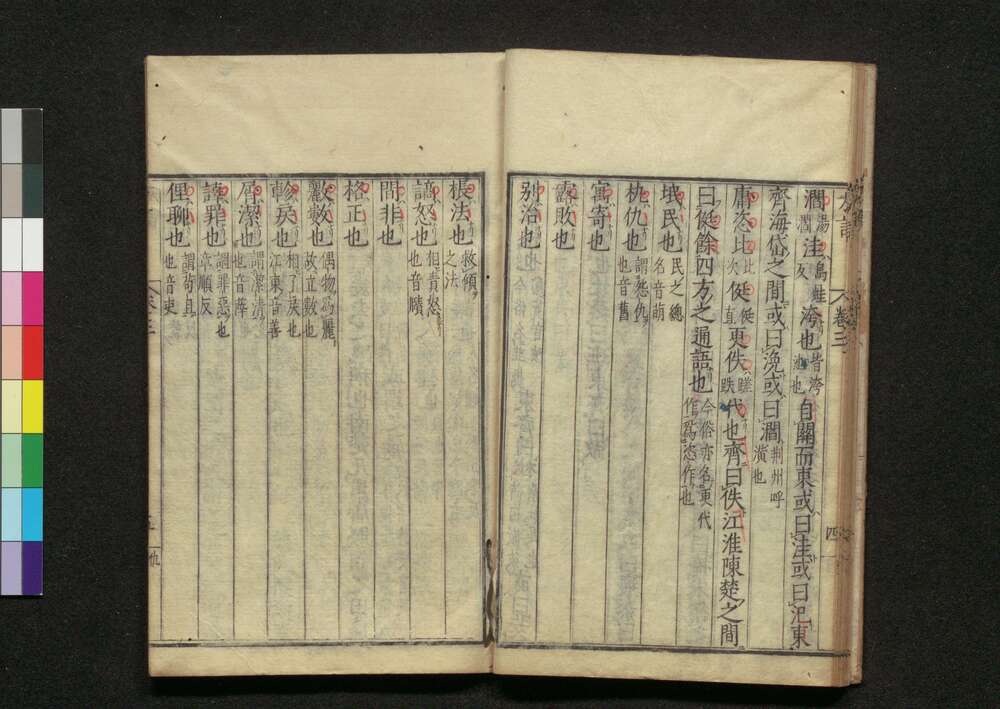 澗湯澗洼烏蛙反洿也皆洿池也自關而東或曰洼或曰汜東
齊海岱之間或曰浼或曰澗荆州呼潢也
庸恣比比次侹侹直更佚蹉跌代也齊曰佚江淮陳楚之間
曰侹餘四方之通語也今俗亦名更代作爲恣作也
氓民也民之總名音萌
杋仇也謂怨仇也音舊
寓寄也
露敗也
别治也
方言 卷三
四
棖法也救傾之法
謫怒也相責怒也音賾
間非也
格正也
𢿛數也偶物爲麗故立數也
軫戾也相了戾也江東音善
屑潔也謂潔清也音薛
謘罪也謂罪惡也章順反
俚聊也謂苟且也音吏